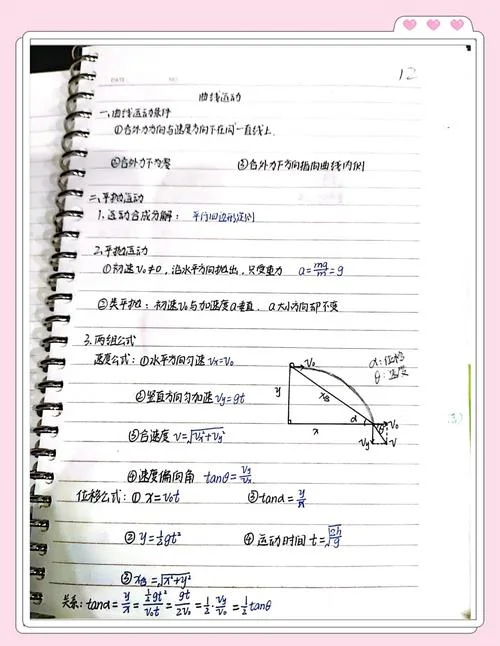 DATE NO
12
曲线运动
一、曲线运动条件
①合外力方向与速度方向不在同一直线上.
②合外力不为零 ③合外力下方向指向曲线内侧
二、平抛运动
1.运动合成分解: 平行四边形定则
2.平抛运动
①初速V₀≠0,沿水平方向抛出,只受重力 a=mg/m=g
②类平抛:初速V₀与加速度a垂直. a大小方向却不变
3.两组公式
速度公式:①水平方向匀速 Vx=V₀
②竖直方向匀加速 Vy=gt
③合速度 V=√(Vx²+Vy²)
④速度偏向角 tanθ=Vy/Vx
V₀
α:位移
θ:速度
y
x合
x
α
θ
V₀
Vy
V
位移公式:① x=V₀t ③tanα=y/x
② y=½gt² ④运动时间 t=√(2h/g)
⑤ x合=√(x²+y²)
关系:tanα=y/x=½gt²/V₀t=gt/2V₀=½·Vy/V₀=½tanθ